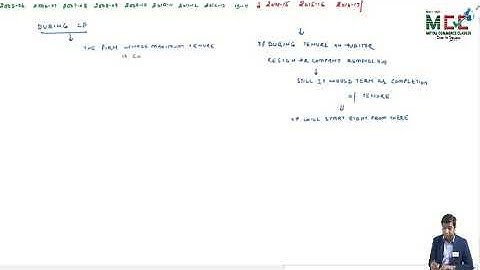 2005-06 2006-07 2007-08 2008-09 2009-10 2010-11 2011-12 2012-13 13-14 2014-15 2015-16 2016-17
MCC
MITTAL COMMERCE CLASSES
DURING CP
THE FIRM WHOSE MAXIMUM TENURE
IS CO
IF DURING TENURE AN AUDITOR
RESIGN OR COMPANY REMOVES HIM
STILL IT WOULD TERM AS COMPLETION
OF TENURE
CP WILL START RIGHT FROM THERE